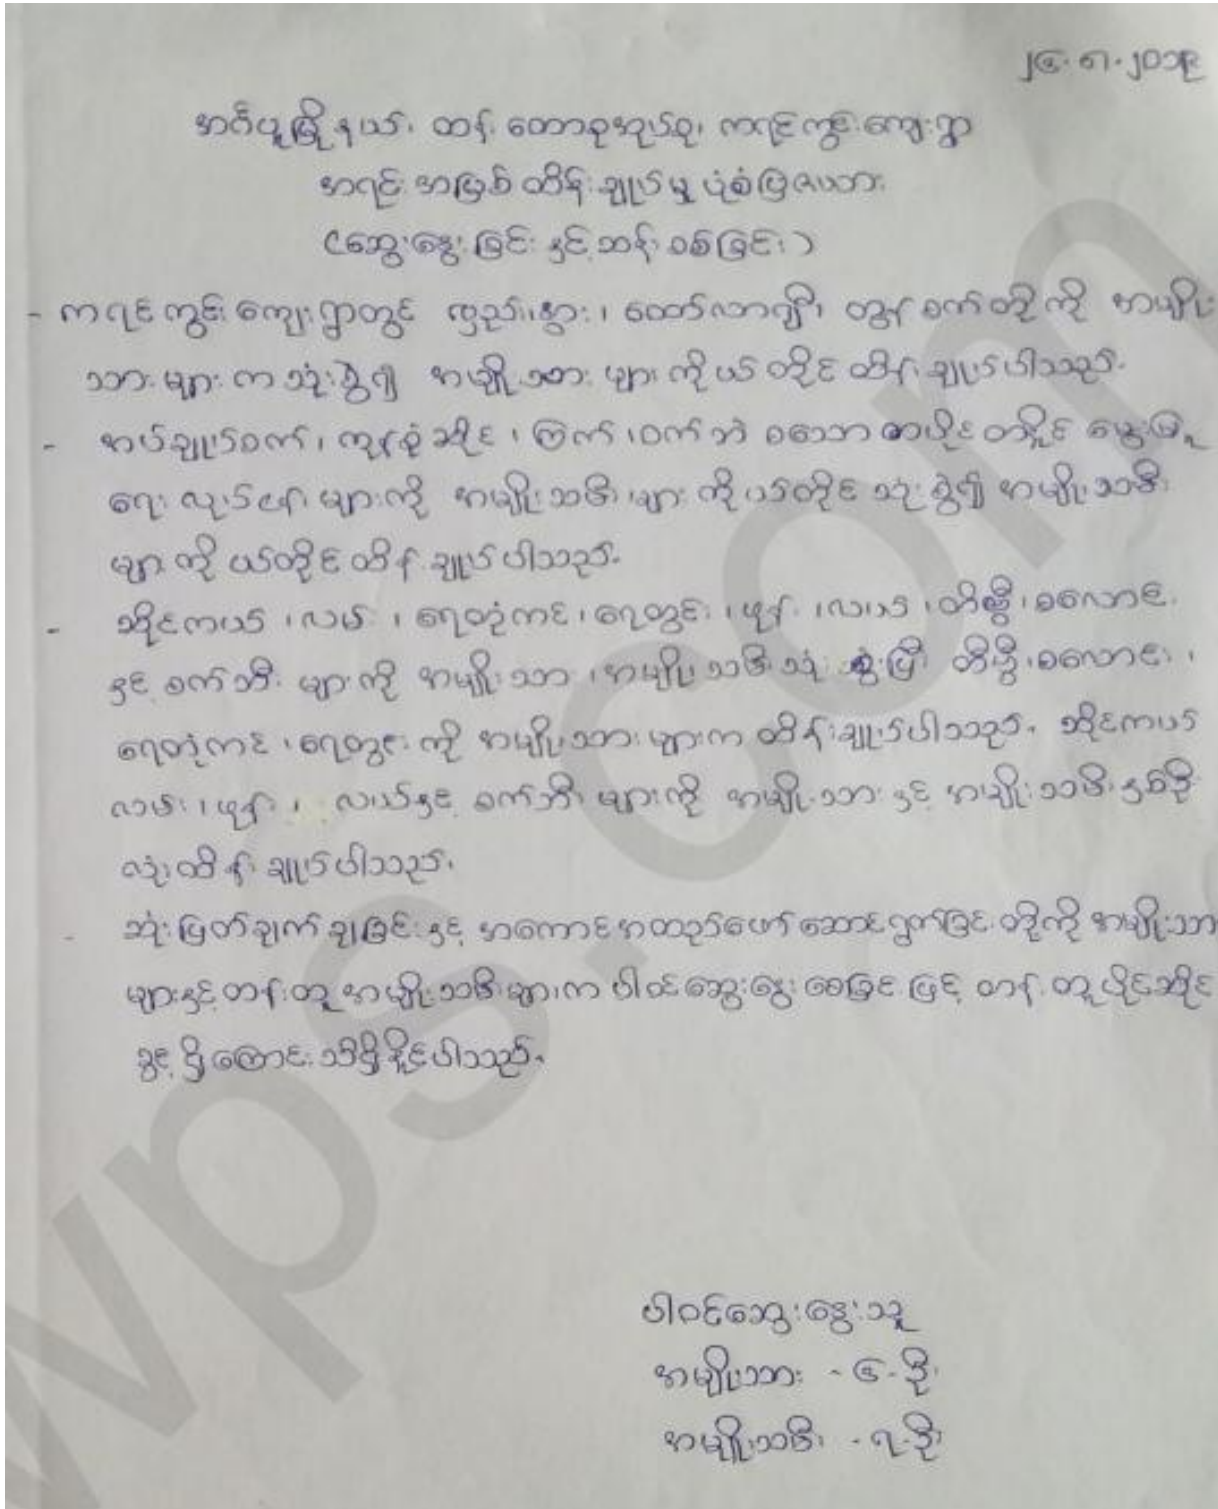 ၂၄.၈.၂၀၁၉
အင်္ဂပူမြို့နယ်၊ ထန်းတောစုအုပ်စု၊ ကရင်ကွင်းကျေးရွာ
အရင်းအမြစ် ထိန်းချုပ်မှု ပုံစံပြဇယား
(ဆွေးနွေးခြင်းနှင့်ဆန်းစစ်ခြင်း)
- ကရင်ကွင်းကျေးရွာတွင် လှည်း၊နွား၊ ထော်လာဂျီ၊ တွန်းစက်တို့ကို အမျိုး
သားများက သုံးစွဲ၍ အမျိုးသားများကိုယ်တိုင်ထိန်းချုပ်ပါသည်။
- အပ်ချုပ်စက်၊ ကုန်စုံဆိုင်၊ ကြက်၊ဝက်ဘဲ စသော တပိုင်တနိုင် မွေးမြူ
ရေးလုပ်ငန်းများကို အမျိုးသမီးများကိုယ်တိုင် သုံးစွဲ၍ အမျိုးသမီး
များကိုယ်တိုင်ထိန်းချုပ်ပါသည်။
- ဆိုင်ကယ်၊လမ်း၊ ရေတုံကင်၊ရေတွင်း၊ဖုန်း၊လယ်၊တီဗွီ၊စလောင်း
နှင့်စက်ဘီးများကို အမျိုးသား၊အမျိုးသမီးသုံးစွဲပြီး တီဗွီ၊စလောင်း၊
ရေတုံကင်၊ရေတွင်းကို အမျိုးသားများက ထိန်းချုပ်ပါသည်။ ဆိုင်ကယ်
လမ်း၊ဖုန်း၊ လယ်နှင့် စက်ဘီးများကို အမျိုးသားနှင့် အမျိုးသမီးနှစ်ဦး
လုံးထိန်းချုပ်ပါသည်။
- ဆုံးဖြတ်ချက်ချခြင်းနှင့် အကောင်အထည်ဖော်ဆောင်ရွက်ခြင်းတို့ကို အမျိုးသား
များနှင့်တန်းတူ အမျိုးသမီးများက ပါဝင်ဆွေးနွေးစေခြင်းဖြင့် တန်းတူပိုင်ဆိုင်
ခွင့်ရှိကြောင်းသိရှိနိုင်ပါသည်။
ပါဝင်ဆွေးနွေးသူ
အမျိုးသား - ၆ - ဦး
အမျိုးသမီး - ၇ - ဦး
wps.com